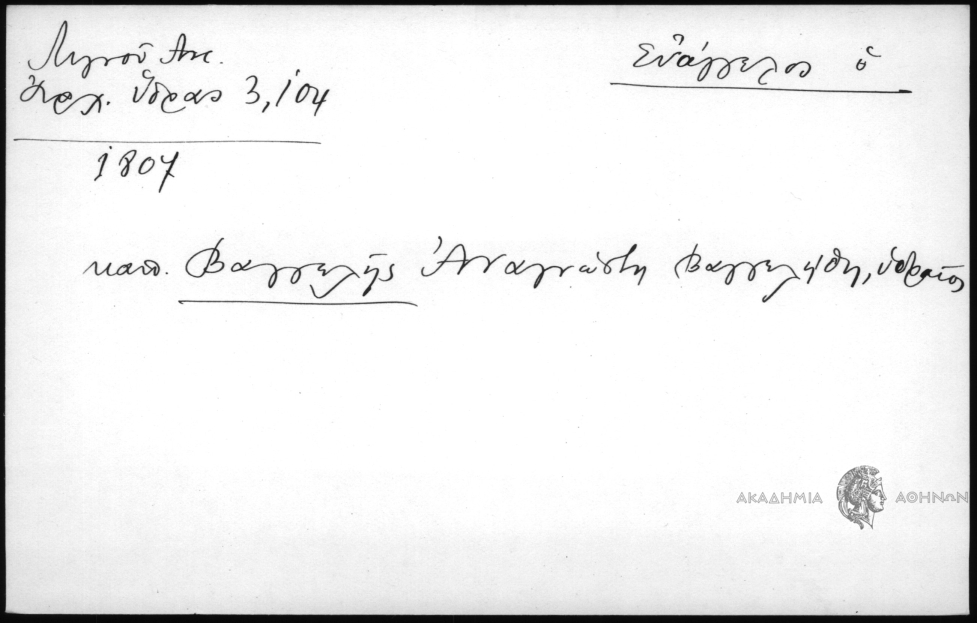 Λιγνοῦ Ἀντ.
Ἀρχ. Ὕδρας 3,104
1807
Εὐάγγελος ὁ
καπ. Βαγγελῆς Ἀναγνώστη Βαγγελήθη, ὑδραῖος
ΑΚΑΔΗΜΙΑ ΑΘΗΝΩΝ